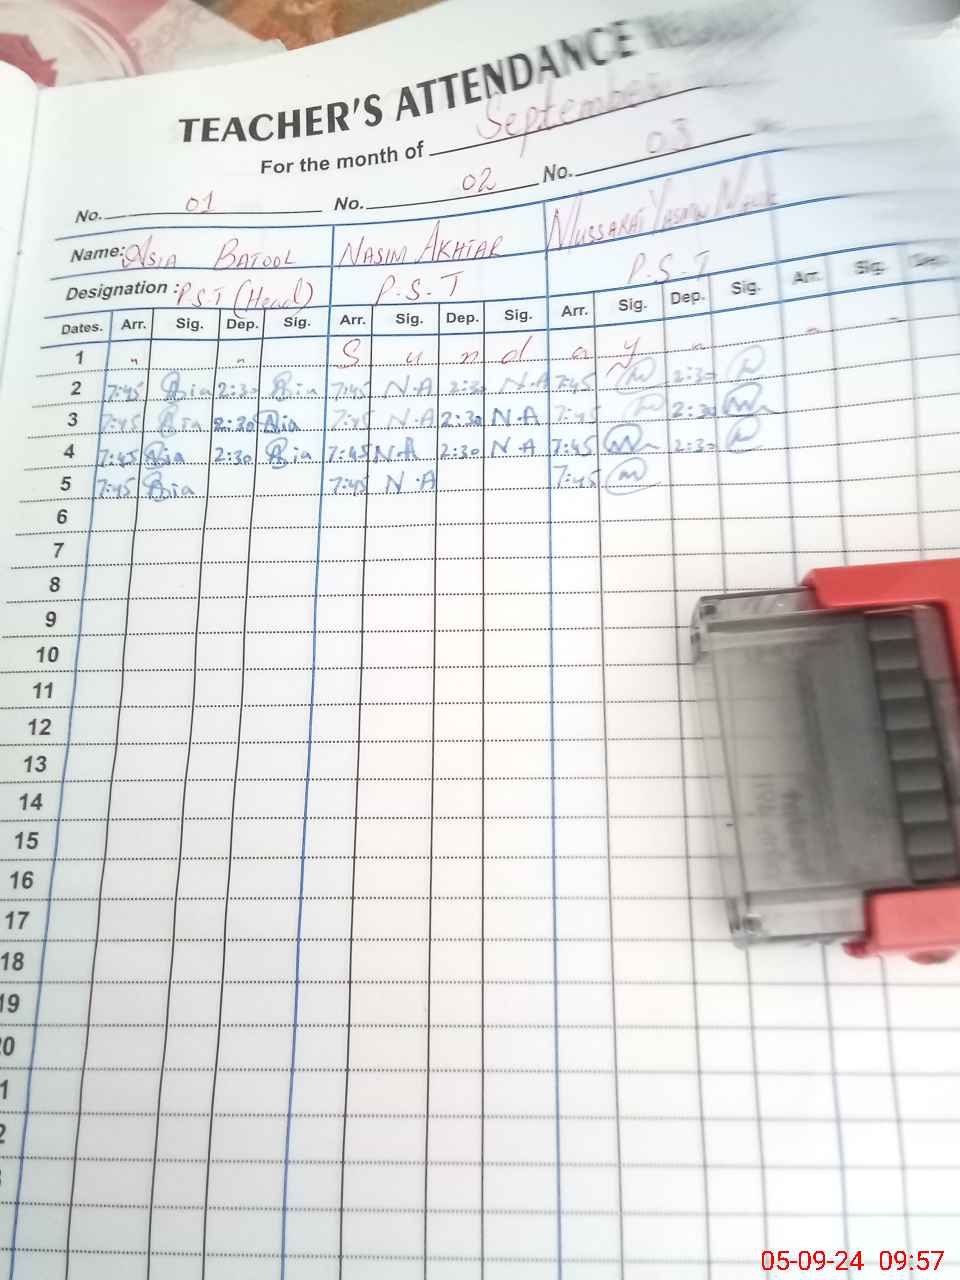 TEACHER'S ATTENDANCE
For the month of September
No. 01 No. 02 No. 03
Name: Asia Batool Nasim Akhtar Mussarat Yasmin
Designation : P.S.T (Head) P.S.T P.S.T
Dates. Arr. Sig. Dep. Sig. Arr. Sig. Dep. Sig. Arr. Sig. Dep. Sig. Arr. Sig.
1 " " S u n d a y "
2 7:45 Asia 2:30 Asia 7:45 N.A 2:30 N.A 7:45 2:30
3 7:45 Asia 2:30 Asia 7:45 N.A 2:30 N.A 7:45 2:30
4 7:45 Asia 2:30 Asia 7:45 N.A 2:30 N.A 7:45 2:30
5 7:45 Asia 7:45 N.A 7:45
6
7
8
9
10
11
12
13
14
15
16
17
18
19
05-09-24 09:57